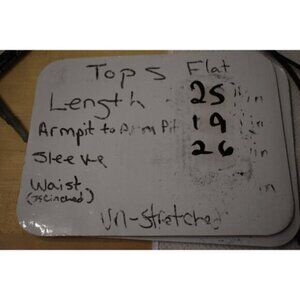 Tops Flat
Length 25 in
Armpit to Armpit 19 in
Sleeve 26 in
Waist in
(IsCinched)
Un-Stretched